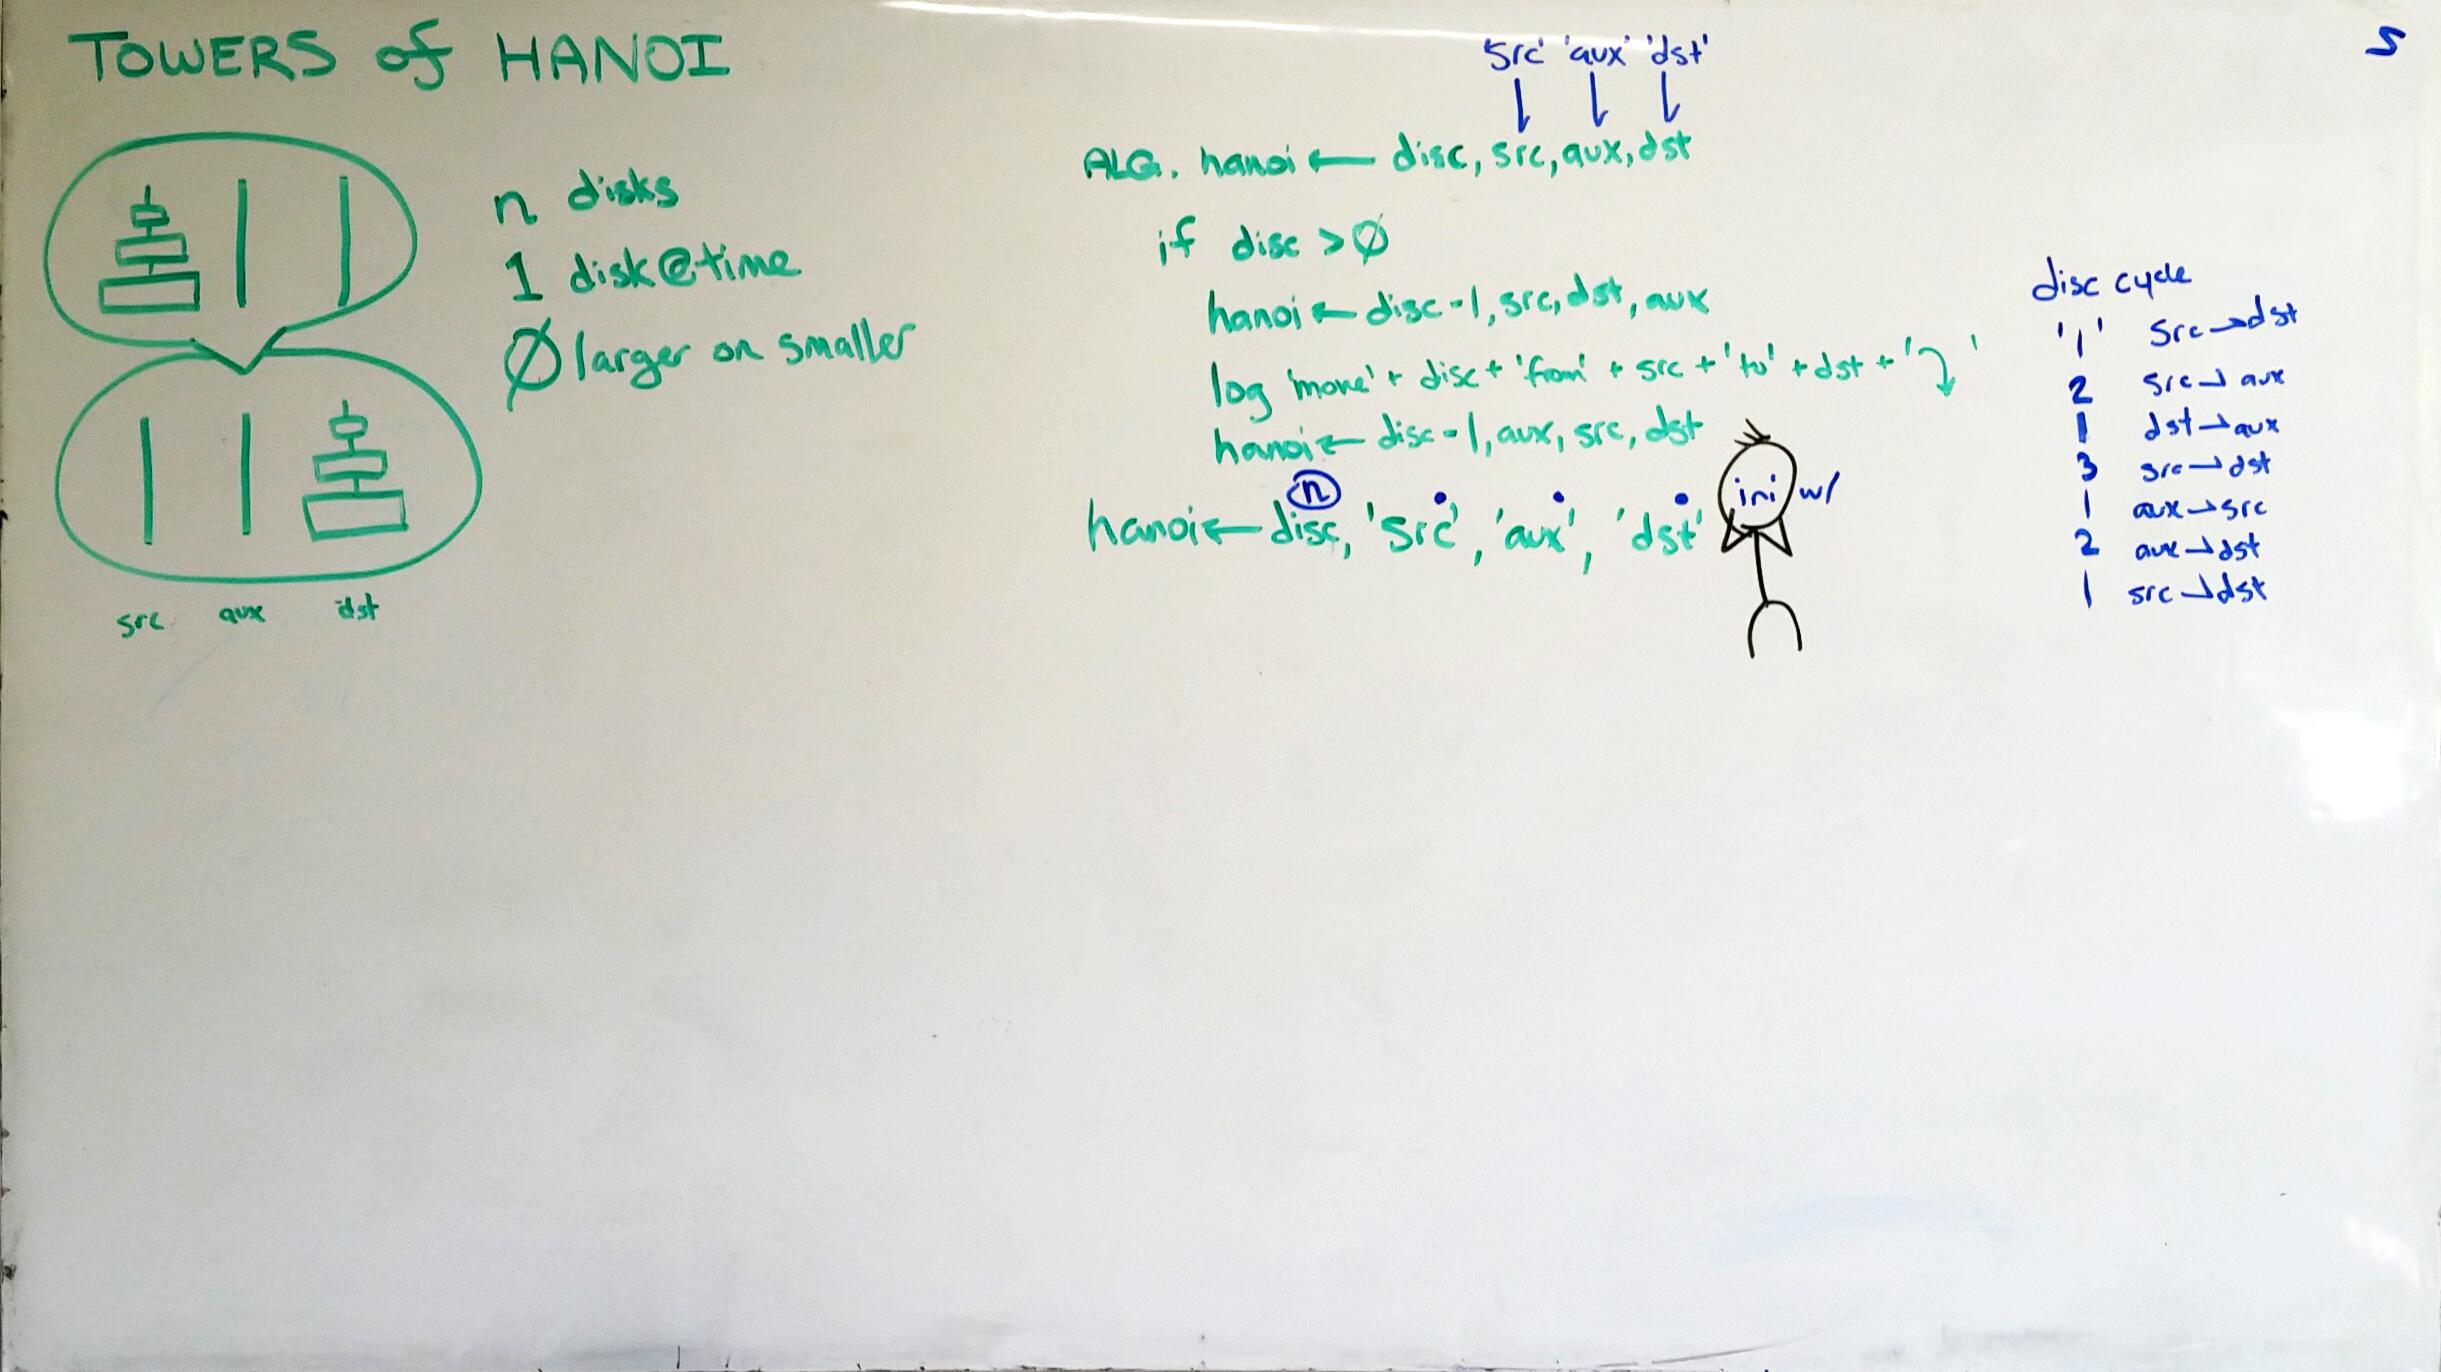 TOWERS of HANOI
n disks
1 disk@time
Ø larger on smaller
src aux dst
'src' 'aux' 'dst'
ALG. hanoi ← disc, src, aux, dst
if disc > Ø
hanoi ← disc-1, src, dst, aux
log 'move' + disc + 'from' + src + 'to' + dst + '⤵'
hanoi ← disc-1, aux, src, dst
n
hanoi ← disc, 'src', 'aux', 'dst'
ini w/
disc cycle
'1' src → dst
2 src → aux
1 dst → aux
3 src → dst
1 aux → src
2 aux → dst
1 src → dst